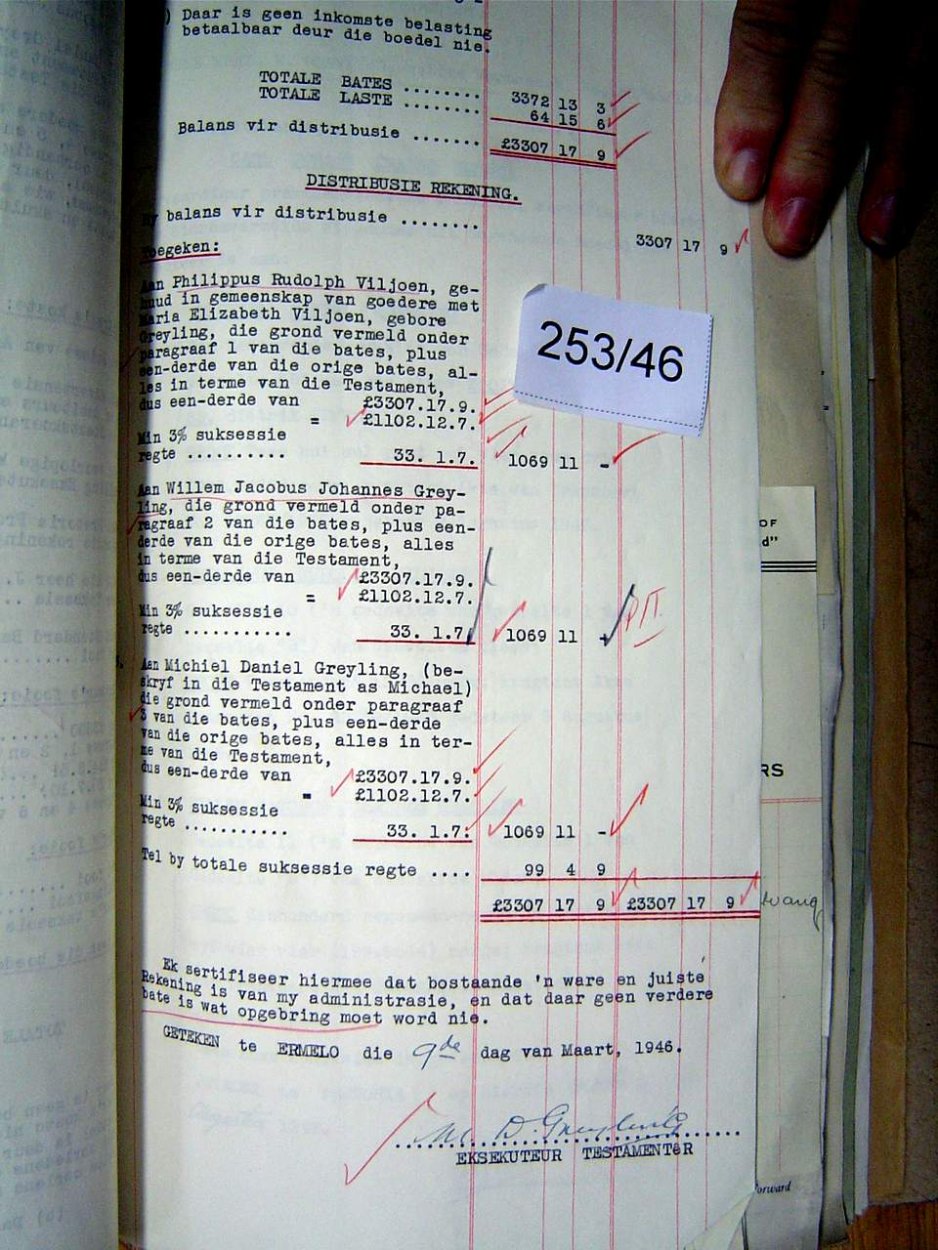 ) Daar is geen inkomste belasting
betaalbaar deur die boedel nie.
TOTALE BATES ........ 3372 13 3
TOTALE LASTE ........ 64 15 6
Balans vir distribusie ....... £3307 17 9
DISTRIBUSIE REKENING.
By balans vir distribusie ........ 3307 17 9
Toegeken:
Aan Philippus Rudolph Viljoen, ge-
huud in gemeenskap van goedere met
Maria Elizabeth Viljoen, gebore
Greyling, die grond vermeld onder
paragraaf 1 van die bates, plus
een-derde van die orige bates, al-
les in terme van die Testament,
dus een-derde van £3307.17.9.
= £1102.12.7.
Min 3% suksessie
regte .......... 33. 1.7. 1069 11 -
253/46
Aan Willem Jacobus Johannes Grey-
ling, die grond vermeld onder pa-
ragraaf 2 van die bates, plus een-
derde van die orige bates, alles
in terme van die Testament,
dus een-derde van £3307.17.9.
= £1102.12.7.
Min 3% suksessie
regte ........... 33. 1.7. 1069 11 -
Aan Michiel Daniel Greyling, (be-
skryf in die Testament as Michael)
die grond vermeld onder paragraaf
3 van die bates, plus een-derde
van die orige bates, alles in ter-
me van die Testament,
dus een-derde van £3307.17.9.
= £1102.12.7.
Min 3% suksessie
regte ........... 33. 1.7. 1069 11 -
Tel by totale suksessie regte .... 99 4 9
£3307 17 9 £3307 17 9
Ek sertifiseer hiermee dat bostaande 'n ware en juiste
Rekening is van my administrasie, en dat daar geen verdere
bate is wat opgebring moet word nie.
GETEKEN te ERMELO die 9de dag van Maart, 1946.
M. D. Greyling
EKSEKUTEUR TESTAMENTêR
OF
d"
RS
orward